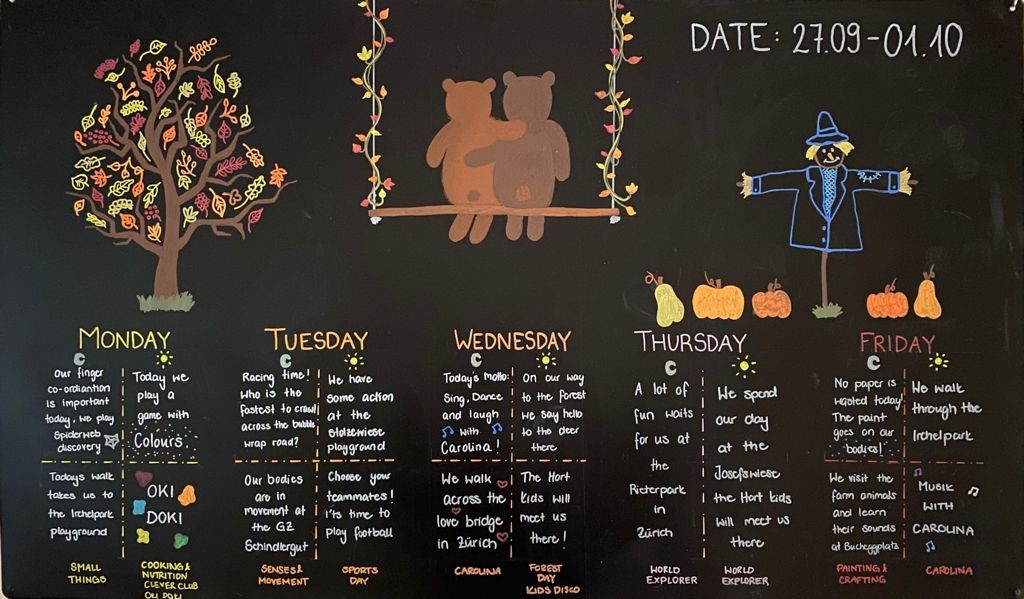 DATE: 27.09-01.10
MONDAY
Our finger
co-ordiantion
is important
today, we play
Spiderweb
discovery
Todays walk
takes us to
the Irchelpark
playground
SMALL
THINGS
Today we
play a
game with
Colours.
OKI
DOKI
COOKING &
NUTRITION
CLEVER CLUB
OKI DOKI
TUESDAY
Racing time!
Who is the
fastest to crawl
across the bubble
wrap road?
Our bodies
are in
movement at
the GZ
Schindlergut
SENSES &
MOVEMENT
We have
some action
at the
stolzewiese
playground
Choose your
teammates!
It's time to
play football
SPORTS
DAY
WEDNESDAY
Today's motto:
Sing, Dance
and laugh
with
Carolina!
We walk
across the
love bridge
in Zürich
CAROLINA
On our way
to the forest
we say hello
to the deer
there
The Hort
Kids will
meet us
there!
FOREST
DAY
KIDS DISCO
THURSDAY
A lot of
fun waits
for us at
the
Rieterpark
in
Zürich
WORLD
EXPLORER
We spend
our day
at the
Josefswiese
the Hort kids
will meet us
there
WORLD
EXPLORER
FRIDAY
No paper is
wasted today!
The paint
goes on our
bodies!
We visit the
farm animals
and learn
their sounds
at Bucheggplatz
PAINTING &
CRAFTING
We walk
through the
Irchelpark
MUSIK
WITH
CAROLINA
CAROLINA